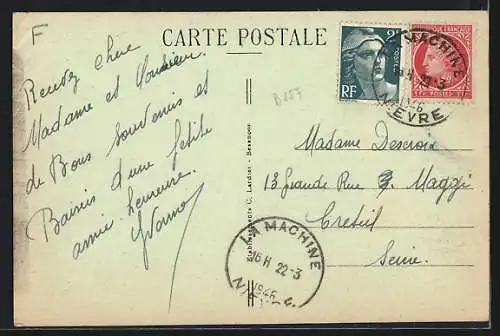 F
CARTE POSTALE
Recevez chère
Madame et Monsieur
de Bons Souvenirs et
Baisers d'une petite
amie heureuse.
Yvonne
B157
Etablissements C. Lardier - Besançon
2F
POSTES
RF
LA MACHINE
16 H 22-3
1946
NIEVRE
Madame Descroix
13 Grande Rue Maggi
Creteil
Seine.
LA MACHINE
16 H 22-3
1946